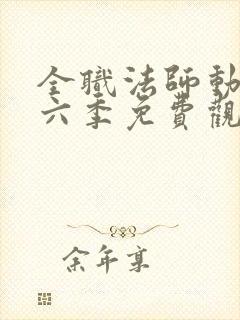 全職法師動
六季免費觀
余年享